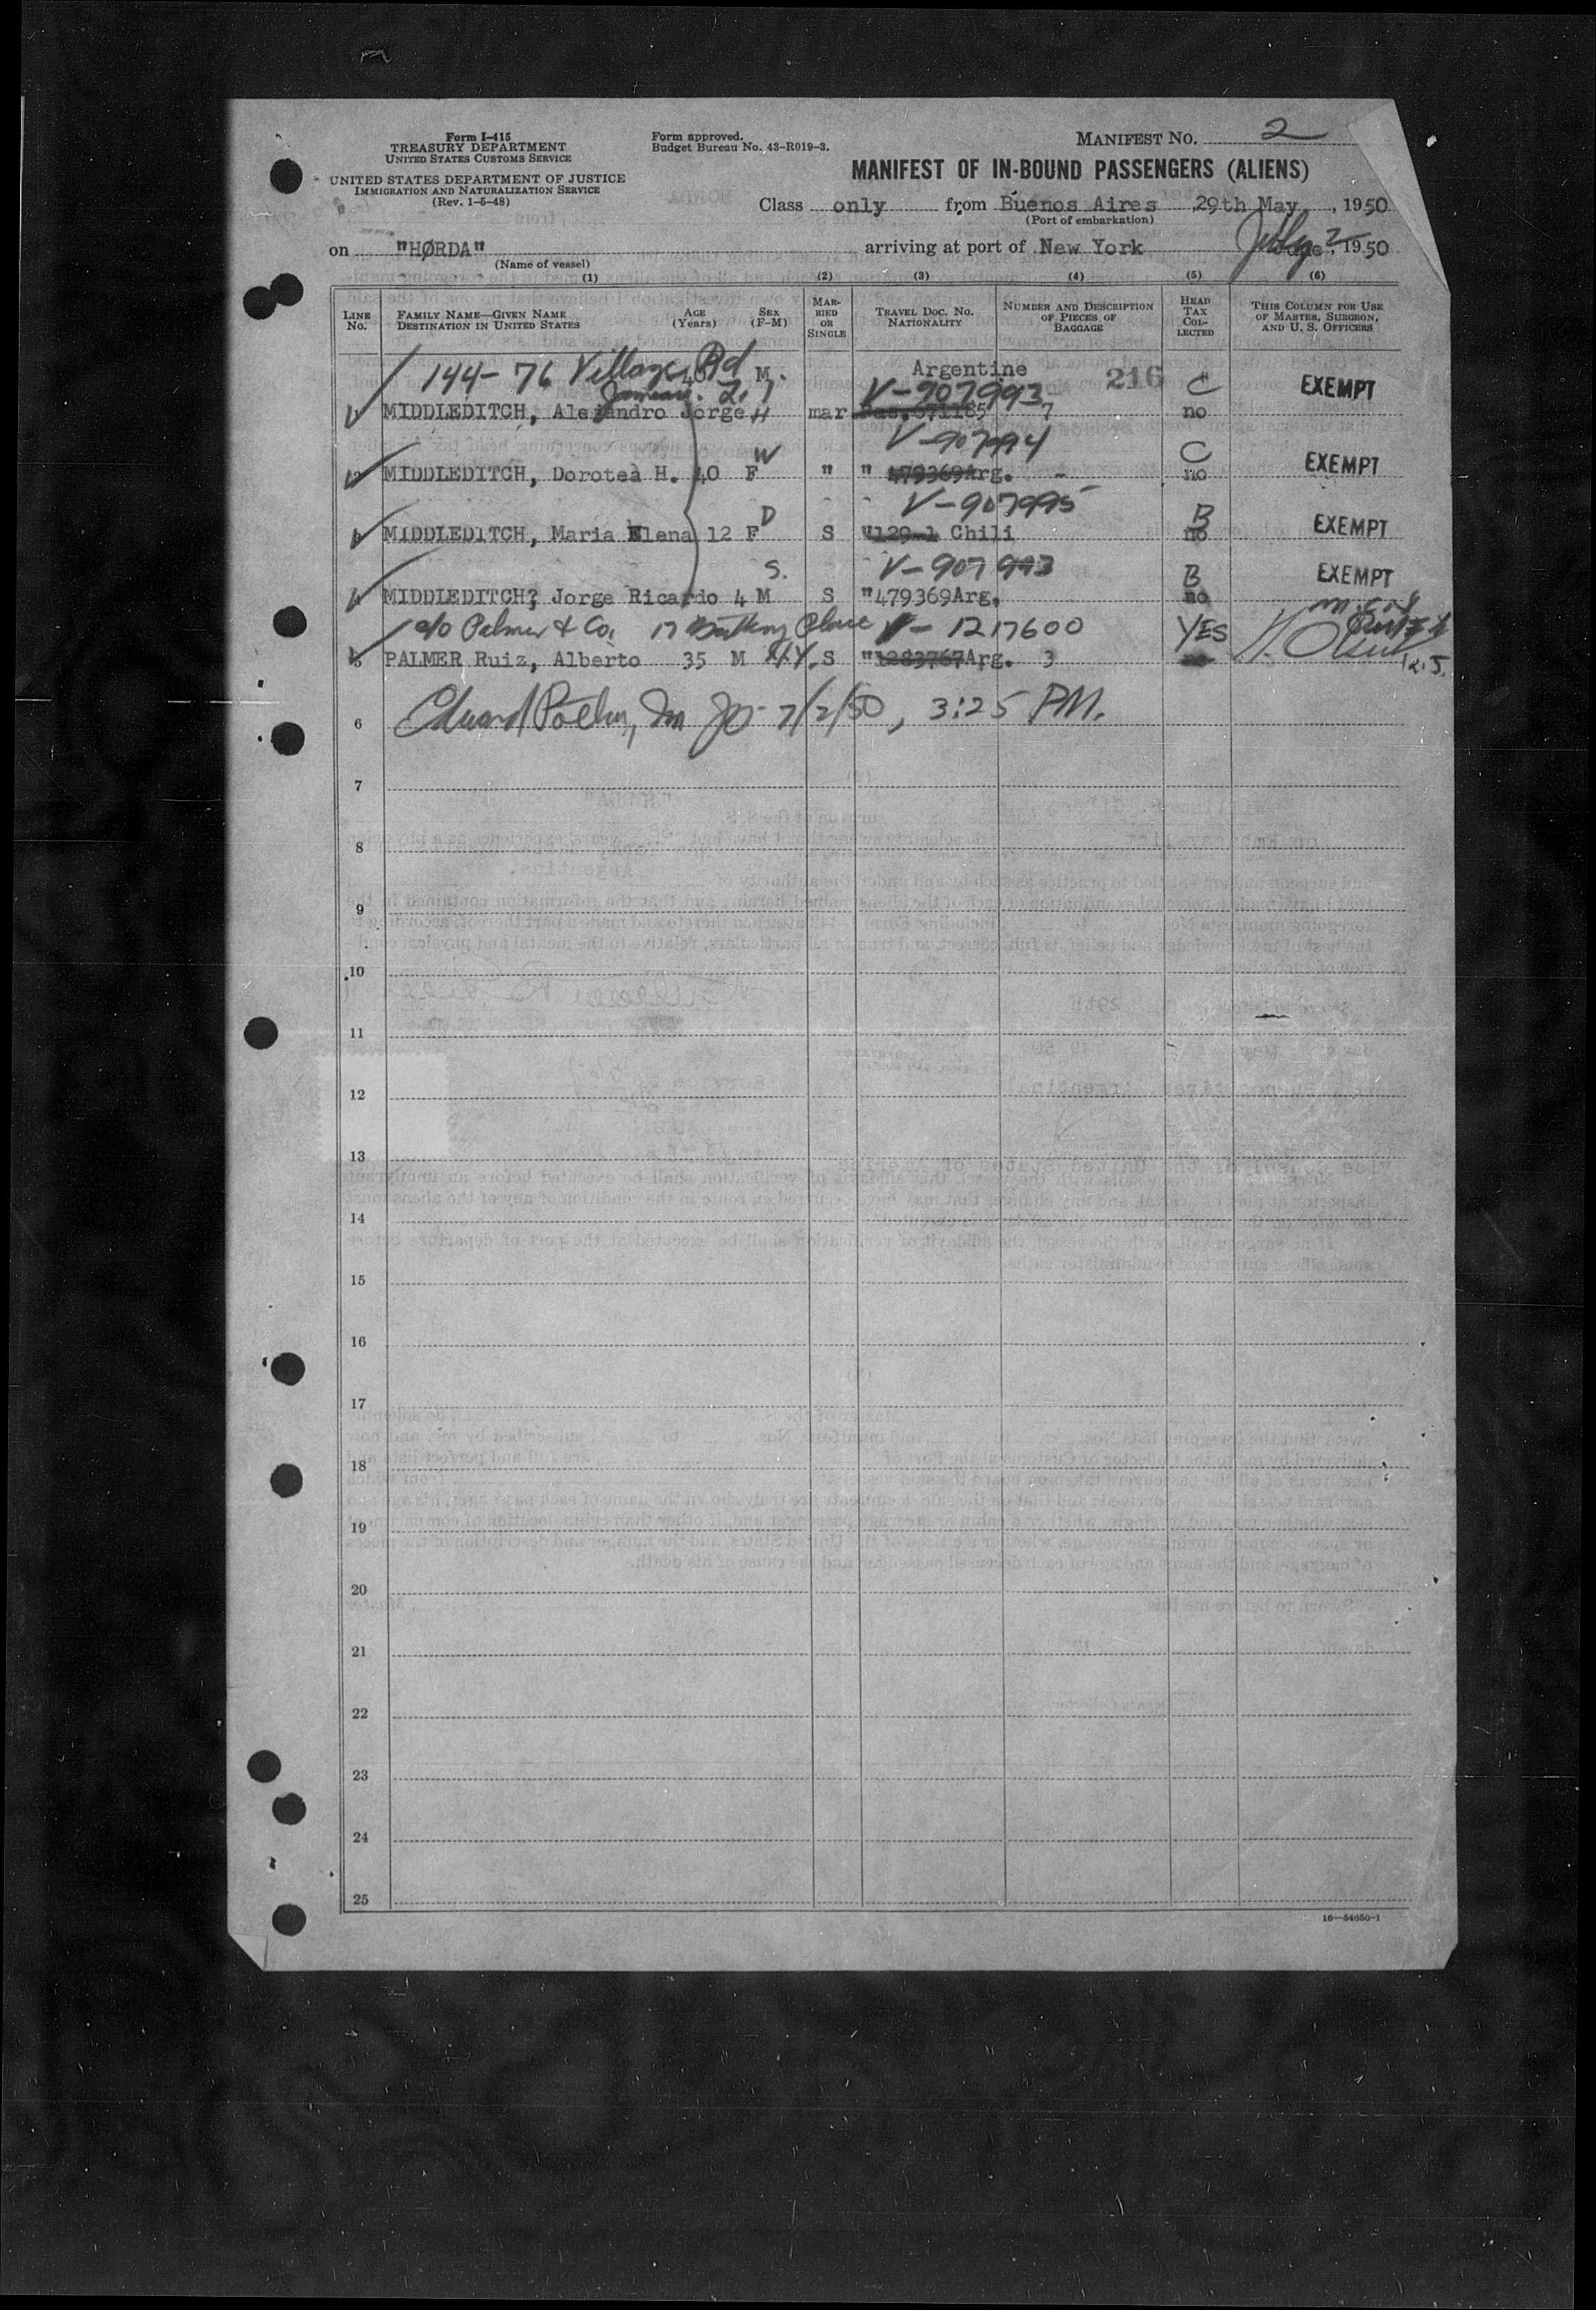 Form I-415
TREASURY DEPARTMENT
UNITED STATES CUSTOMS SERVICE
UNITED STATES DEPARTMENT OF JUSTICE
IMMIGRATION AND NATURALIZATION SERVICE
(Rev. 1-5-48)
Form approved.
Budget Bureau No. 43-R019-3.
MANIFEST NO. 2
MANIFEST OF IN-BOUND PASSENGERS (ALIENS)
Class only from Buenos Aires 29th May, 1950
(Port of embarkation)
on "HØRDA" arriving at port of New York July 2 1950
(Name of vessel)
(1) (2) (3) (4) (5) (6)
LINE NO. FAMILY NAME—GIVEN NAME DESTINATION IN UNITED STATES AGE (Years) SEX (F-M) MARRIED OR SINGLE TRAVEL DOC. NO. NATIONALITY NUMBER AND DESCRIPTION OF PIECES OF BAGGAGE HEAD TAX COLLECTED THIS COLUMN FOR USE OF MASTER, SURGEON, AND U. S. OFFICERS
144-76 Village Rd 40 M. Argentine 216 C EXEMPT
Jamaica. V-907993
MIDDLEDITCH, Alejandro Jorge H mar 671185 7 no
W V-907994 C EXEMPT
MIDDLEDITCH, Dorotea H. 40 F " " 479369Arg. - no
D V-907995 B EXEMPT
MIDDLEDITCH, Maria Elena 12 F S "129-1 Chili no
S. V-907993 B EXEMPT
MIDDLEDITCH? Jorge Ricardo 4 M S "479369Arg. no
c/o Palmer & Co. 17 Battery Place V-1217600 YES
PALMER Ruiz, Alberto 35 M N.Y. S "1283767Arg. 3
6 Edward 7/2/50, 3:25 PM.
7
8
9
10
11
12
13
14
15
16
17
18
19
20
21
22
23
24
25
16—54650-1